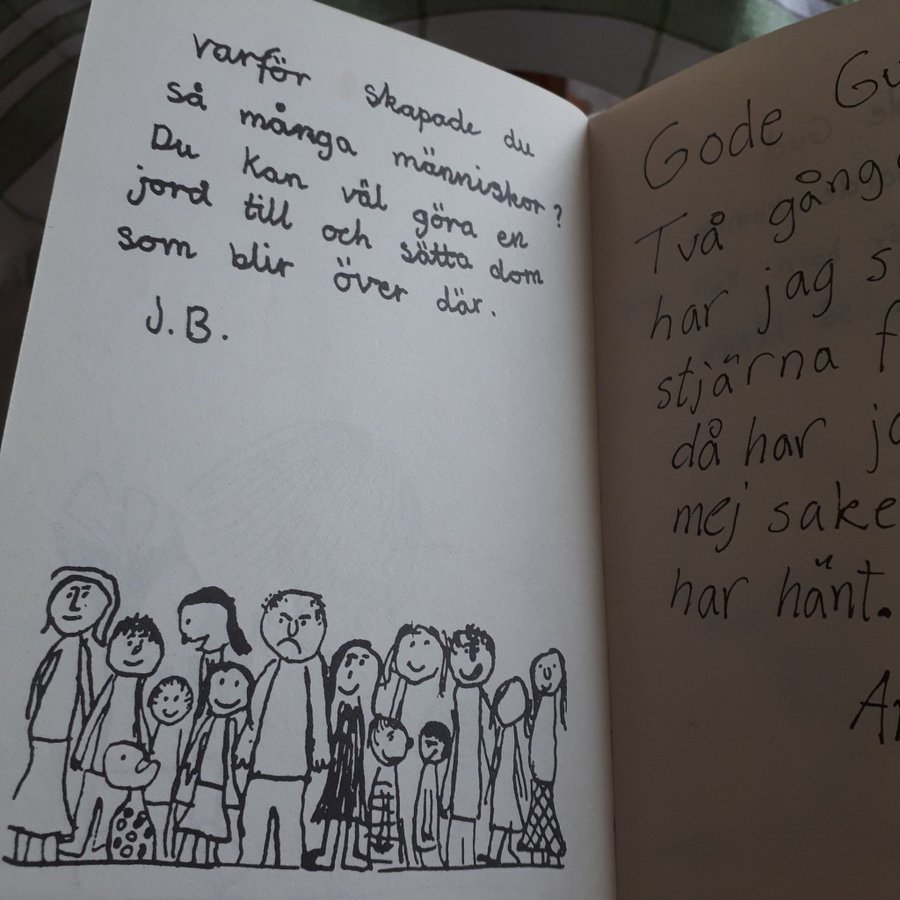 varför skapade du
så många människor?
Du kan väl göra en
jord till och sätta dom
som blir över där.
J.B.
Gode
Två
har jag
stjärna
då har
mej
har hänt.